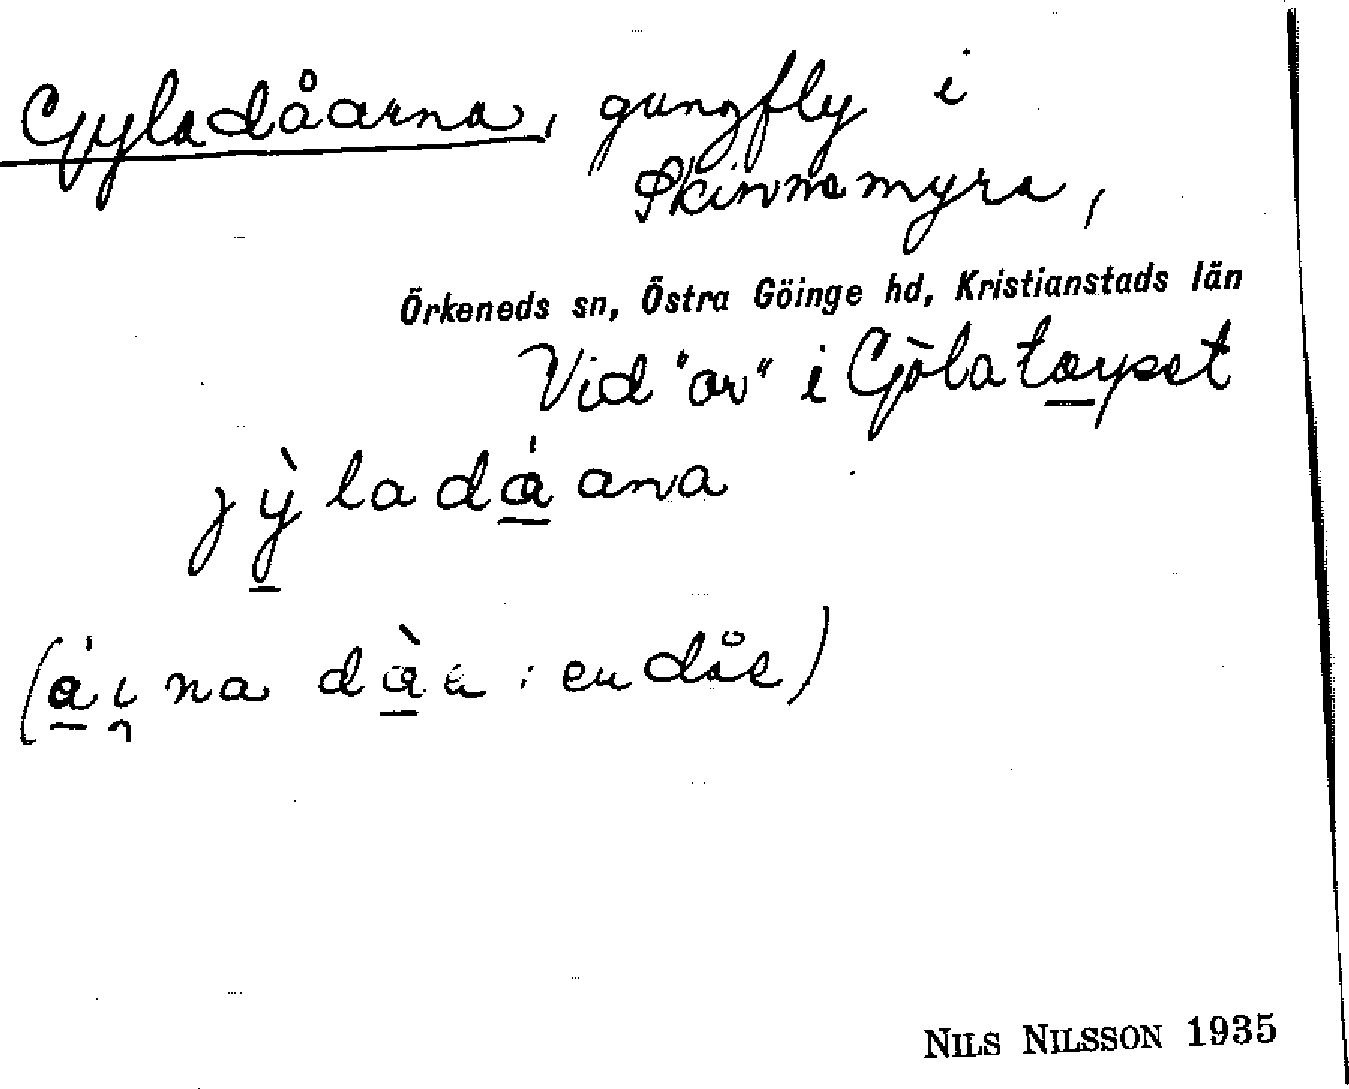 Gyladåarna, gungfly i
Skinnemyra,
Örkeneds sn, Östra Göinge hd, Kristianstads län
Vid "ov" i Gölatorpet
jỳladáana
(áı̯na dàa : en dåe)
NILS NILSSON 1935